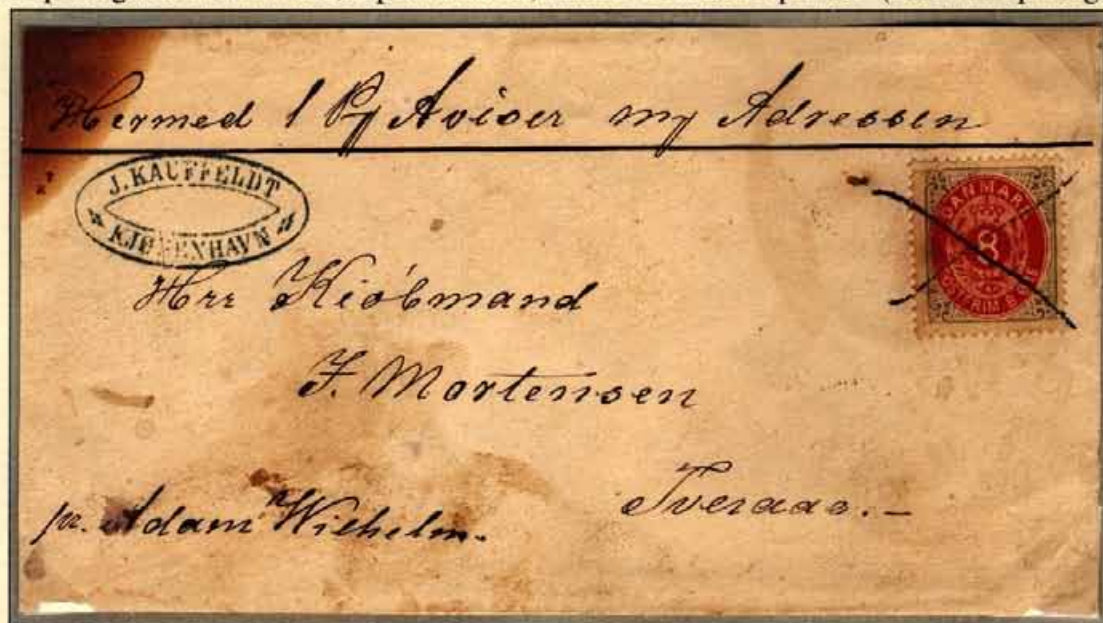 Hermed 1 Pk Aviser m/ Adressen
J. KAUFFELDT
KJØBENHAVN
DANMARK
8
POSTFRIM
Herr Kiöbmand
J. Mortensen
Tveraae.-
pr. Adam Wilhelm.